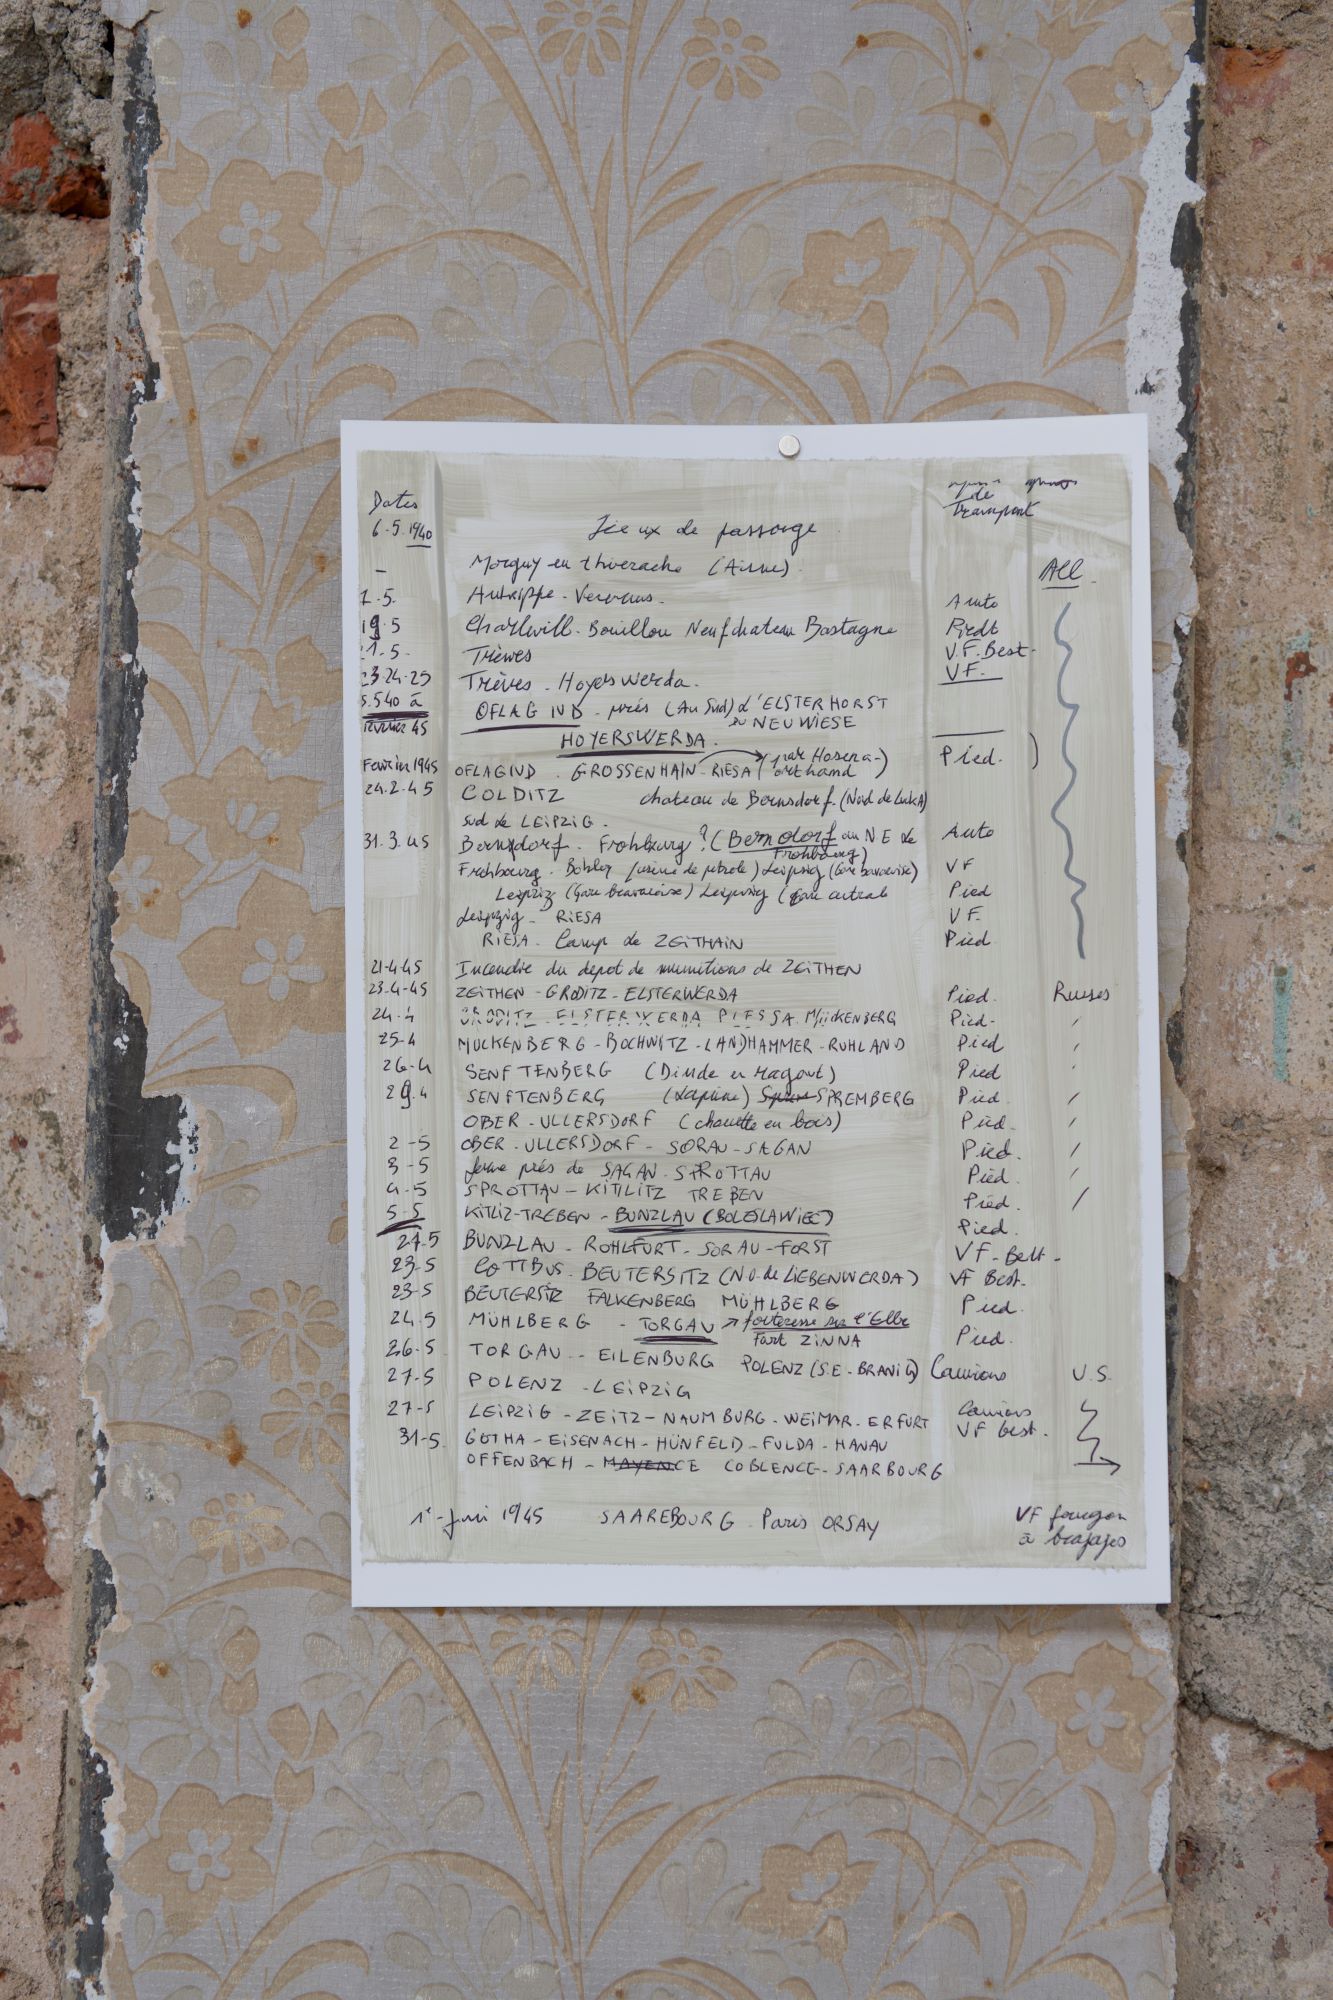 Dates
de
Transport
6.5.1940 Lieux de passage
- Morguy en thierache (Aisne). All.
7.5. Autrippe - Auto
19.5 Charlevill. Bouillon Neufchateau Bastogne
21.5. Trèves V.F. Best.
23.24.25 Trèves. Hoyerswerda. VF.
5.540 à OFLAG IVD. près (Au Süd) d'ELSTERHORST
février 45 ou NEUWIESE
HOYERSWERDA.
Fevrier 1945 OFLAGIVD. GROSSENHAIN - RIESA (par Hosena- Pied.
orthand )
24.2.45 COLDITZ chateau de Bernsdorf. (Nord de LuckA)
sud de LEIPZIG.
31.3.45 Bernsdorf. Frohburg? (Berndorf au N E de Auto
Frohbourg)
Frohbourg. Bohlen (usine de pétrole) Leipzig (Gare bavaroise) VF
Leipzig (Gare bavaroise) Leipzig (gare central Pied
Leipzig - RIESA V.F.
RIESA. Camp de ZEITHAIN Pied
21-4-45 Incendie du depot de munitions de ZEITHEN
23.4-45 ZEITHEN - GRODITZ - ELSTERWERDA Pied. Russes
24.4 GRODITZ - ELSTERWERDA PLESSA. MÜCKENBERG Pied. "
25-4 MUCKENBERG - BOCHWITZ - LANDHAMMER - RUHLAND Pied "
26-4 SENFTENBERG (Dinde en ragout) Pied "
29.4 SENFTENBERG (Lapine) SPREMBERG Pied. "
OBER-ULLERSDORF (chouette en bois) Pied. "
2-5 OBER-ULLERSDORF - SORAU - SAGAN Pied. "
3-5 ferme près de SAGAN - SPROTTAU Pied. "
4-5 SPROTTAU - KITTLITZ TREBEN Pied. "
5-5 KITLIZ-TREBEN - BUNZLAU (BOLESLAWIEC) Pied.
27.5 BUNZLAU - ROHLFURT - SORAU - FORST VF - Best -
23.5 COTTBUS - BEUTERSITZ (N.O. de LIEBENWERDA) VF Best.
23-5 BEUTERSITZ FALKENBERG MÜHLBERG Pied.
24.5 MÜHLBERG - TORGAU → forteresse sur l'Elbe Pied.
Fort ZINNA
26-5 TORGAU - EILENBURG POLENZ (S.E - BRANIG) Camions U.S.
27-5 POLENZ - LEIPZIG
27-5 LEIPZIG - ZEITZ - NAUMBURG - WEIMAR - ERFURT Camions
31-5. GOTHA - EISENACH - HÜNFELD - FULDA - HANAU VF best.
OFFENBACH - MAYENCE COBLENCE - SAARBOURG
1er Juin 1945 SAAREBOURG Paris ORSAY VF fourgon
à bagages